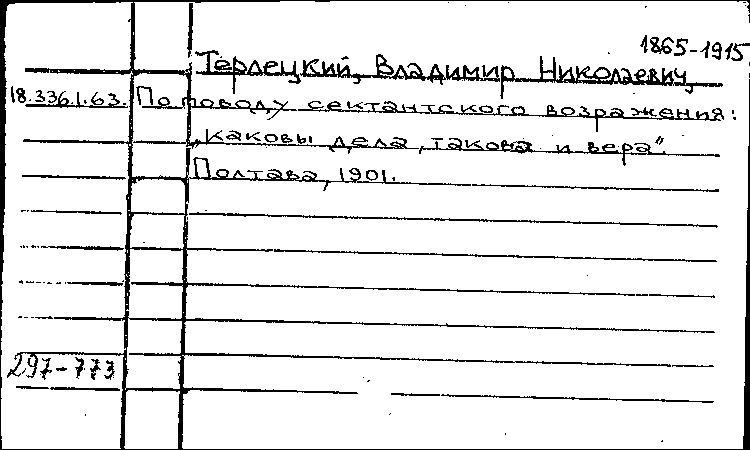 1865-1915
Терлецкий, Владимир Николаевич,
18.336.1.63. По поводу сектантского возражения:
„каковы дела, такова и вера".
Полтава, 1901.
297-773